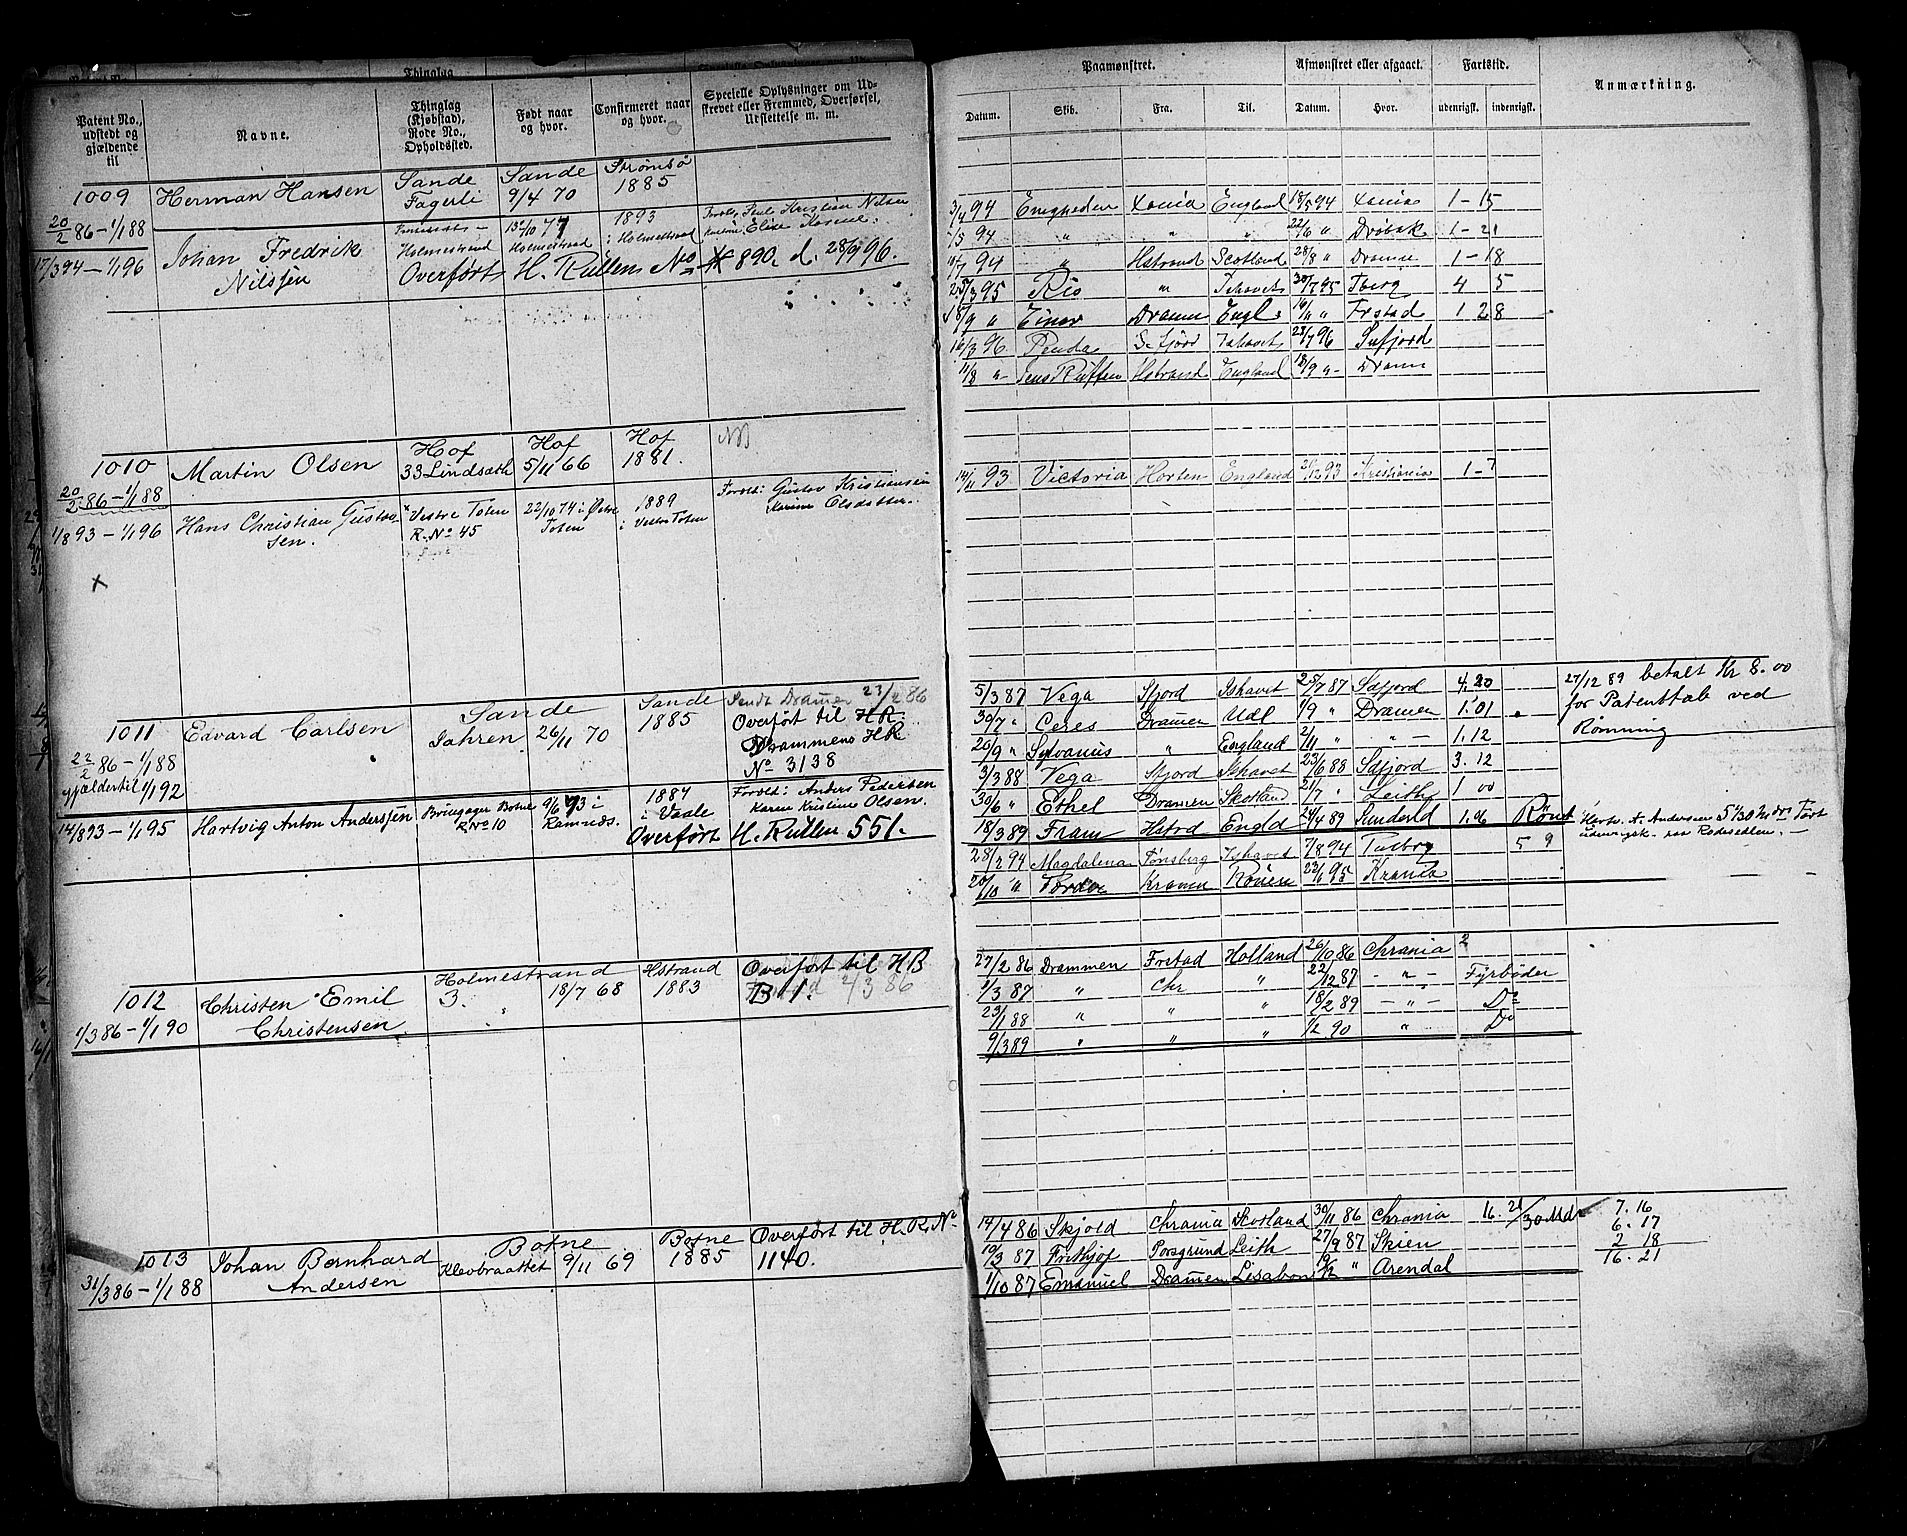 Patent No., udstedt og gjældende til
Navne.
Thinglag (Kjøbstad), Rode No., Opholdssted.
Født naar og hvor.
Confirmeret naar og hvor.
Specielle Oplysninger om Udskrevet eller Fremmed, Overførsel, Udslettelse m. m.
1009 Herman Hansen Sande Sande Strømsø
Fagerli 9/4 70 1885
20/2 86 – 1/1 88
Johan Fredrik Holmestrand 15/10 77 Holmestrand 1893 i Holmestrand
17/3 94 – 1/1 96 Nilssen Overført H. Rullens No 890. d. 28/9 96.
1010 Martin Olsen Hof Hof Hof NB
33 Lindsæth 5/11 66 1881.
20/2 86 – 1/1 88
1/8 93 – 1/1 96 Hans Christian Gustavsen. Vestre Toten R. No 45 22/10 74 i Østre Toten 1889 i Vestre Toten Forold: Gustav Kristiansen Karine Olsdatter.
x
1011 Edvard Carlsen Sande Sande Sendt Dramen 23/2 86
Jahren 26/11 70 1885 Overført til HR.
Drammens HR
No 3138
22/2 86 – 1/1 88
gjælder til 1/1 92
14/8 93 – 1/1 95 Hartvig Anton Anderssen Botne R No 10 9/6 73 i Ramnæs. 1887 i Vaale Forold: Anders Pedersen Karen Kristine Olsen.
Overført H. Rullen 551.
1012 Christen Emil Holmestrand Hstrand Overført til HB
3. 18/7 68 1883 B 1. 2/3 86
1/3 86 – 1/1 90 Christensen
1013 Johan Bernhard Botne Botne Overført til H. R. No
Klevbraattet 9/11 69 1885 1140.
31/3 86 – 1/1 88 Andersen
Paamønstret. Afmønstret eller afgaaet. Fartstid. Anmærkning.
Datum. Skib. Fra. Til. Datum. Hvor. udenrigst. indenrigst.
3/4 94 Enigheden Xania England 18/5 94 Xania 1 – 15
/5 94 " " " 22/6 " Drøbak 1 – 21
/7 94 " Hstrand Scotland 28/8 " Dramn 1 – 18
25/3 95 Rio " Ishavet 30/7 95 Tberg 4 5
18/9 " Einar Dramn Engl. 16/11 " Frstad 1 28
16/3 96 Penda Sefjord Ishavet 28/7 96 Sefjord
11/8 " Jens Rüffen Hstrand England 18/9 " Dramn
14/11 93 Victoria Horten England 21/12 93 Kristiania 1 – 7
5/3 87 Vega Sfjord Ishavet 25/7 87 Sdfjord 4. 20 27/12 89 betalt Kr 8.00
30/7 " Ceres Dramen Udl 1/9 " Dramen 1. 01 for Patenttab ved
20/9 " Sylvanus " England 2/11 " – " – 1. 12 Rømning
3/3 88 Vega Sfjord Ishavet 23/6 88 Sdfjord 3. 12
30/6 " Ethel Dramen Skotland 21/7 " Leith 1 00
18/3 89 Fram Hstrd Engld 24/4 89 Sunderld 1. 06 Rømt
28/2 94 Magdalena Tønsberg Ishavet 7/8 94 5 9
20/10 " Kramn Rouen 23/1 95 Krania
27/2 86 Drammen Frstad Holland 26/10 86 Chrania 2
1/3 87 " Chr " 22/12 87 – " – Fyrbøder
23/1 88 " " " 18/2 89 – " – Do
9/3 89 " " " 1/2 90 " Do
14/4 86 Skjold Chrania Scotland 30/11 86 Chrania 16. 21 /30 Md 7. 16
19/3 87 Frithjof Porsgrund Leith 27/9 87 Skien 6. 17
1/10 87 Emanuel Dramen Lisabon " Arendal 2 18
16. 21